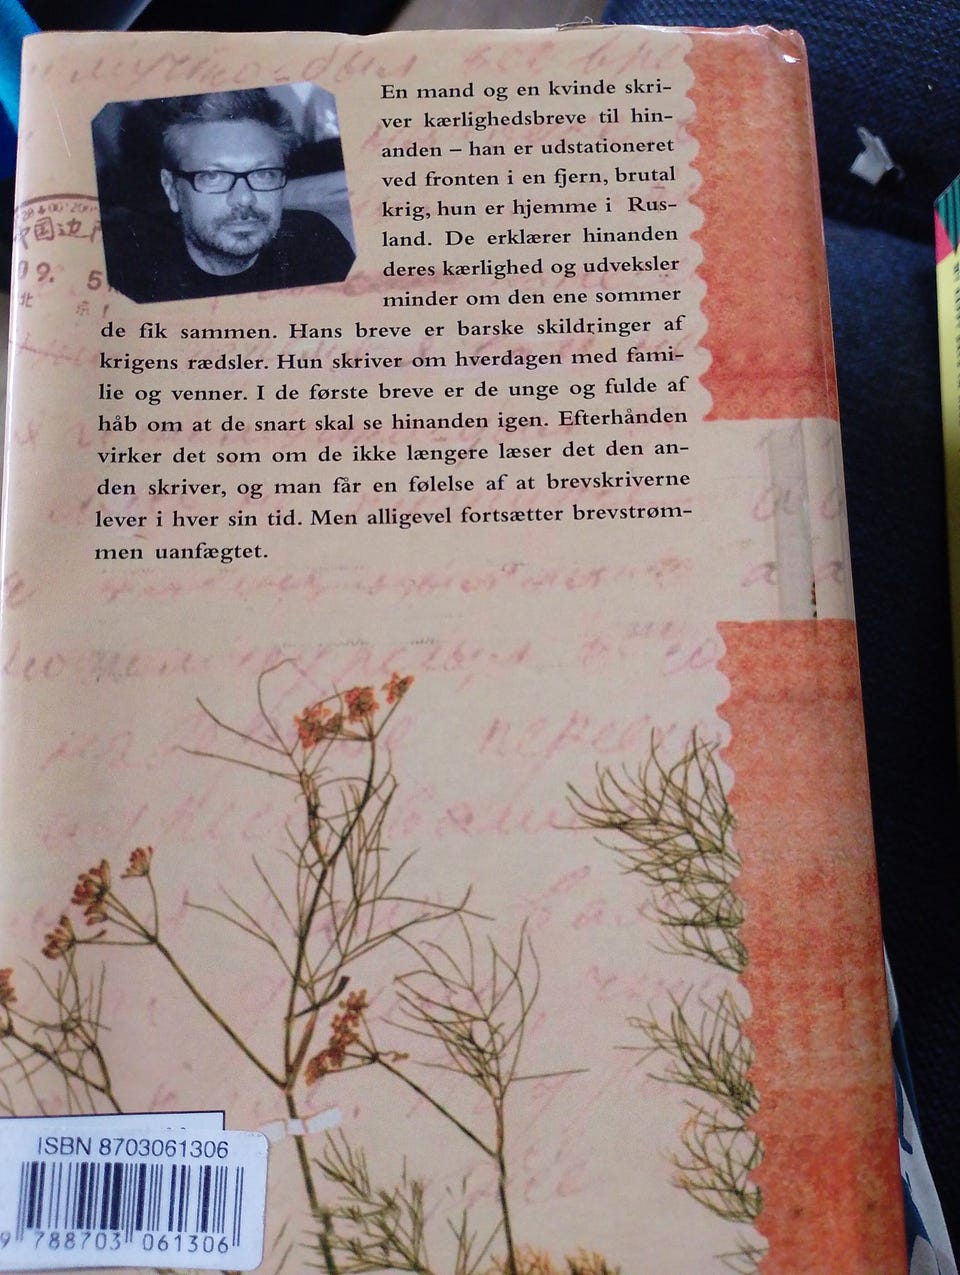 En mand og en kvinde skri-
ver kærlighedsbreve til hin-
anden – han er udstationeret
ved fronten i en fjern, brutal
krig, hun er hjemme i Rus-
land. De erklærer hinanden
deres kærlighed og udveksler
minder om den ene sommer
de fik sammen. Hans breve er barske skildringer af
krigens rædsler. Hun skriver om hverdagen med fami-
lie og venner. I de første breve er de unge og fulde af
håb om at de snart skal se hinanden igen. Efterhånden
virker det som om de ikke længere læser det den an-
den skriver, og man får en følelse af at brevskriverne
lever i hver sin tid. Men alligevel fortsætter brevstrøm-
men uanfægtet.
ISBN 8703061306
9 788703 061306